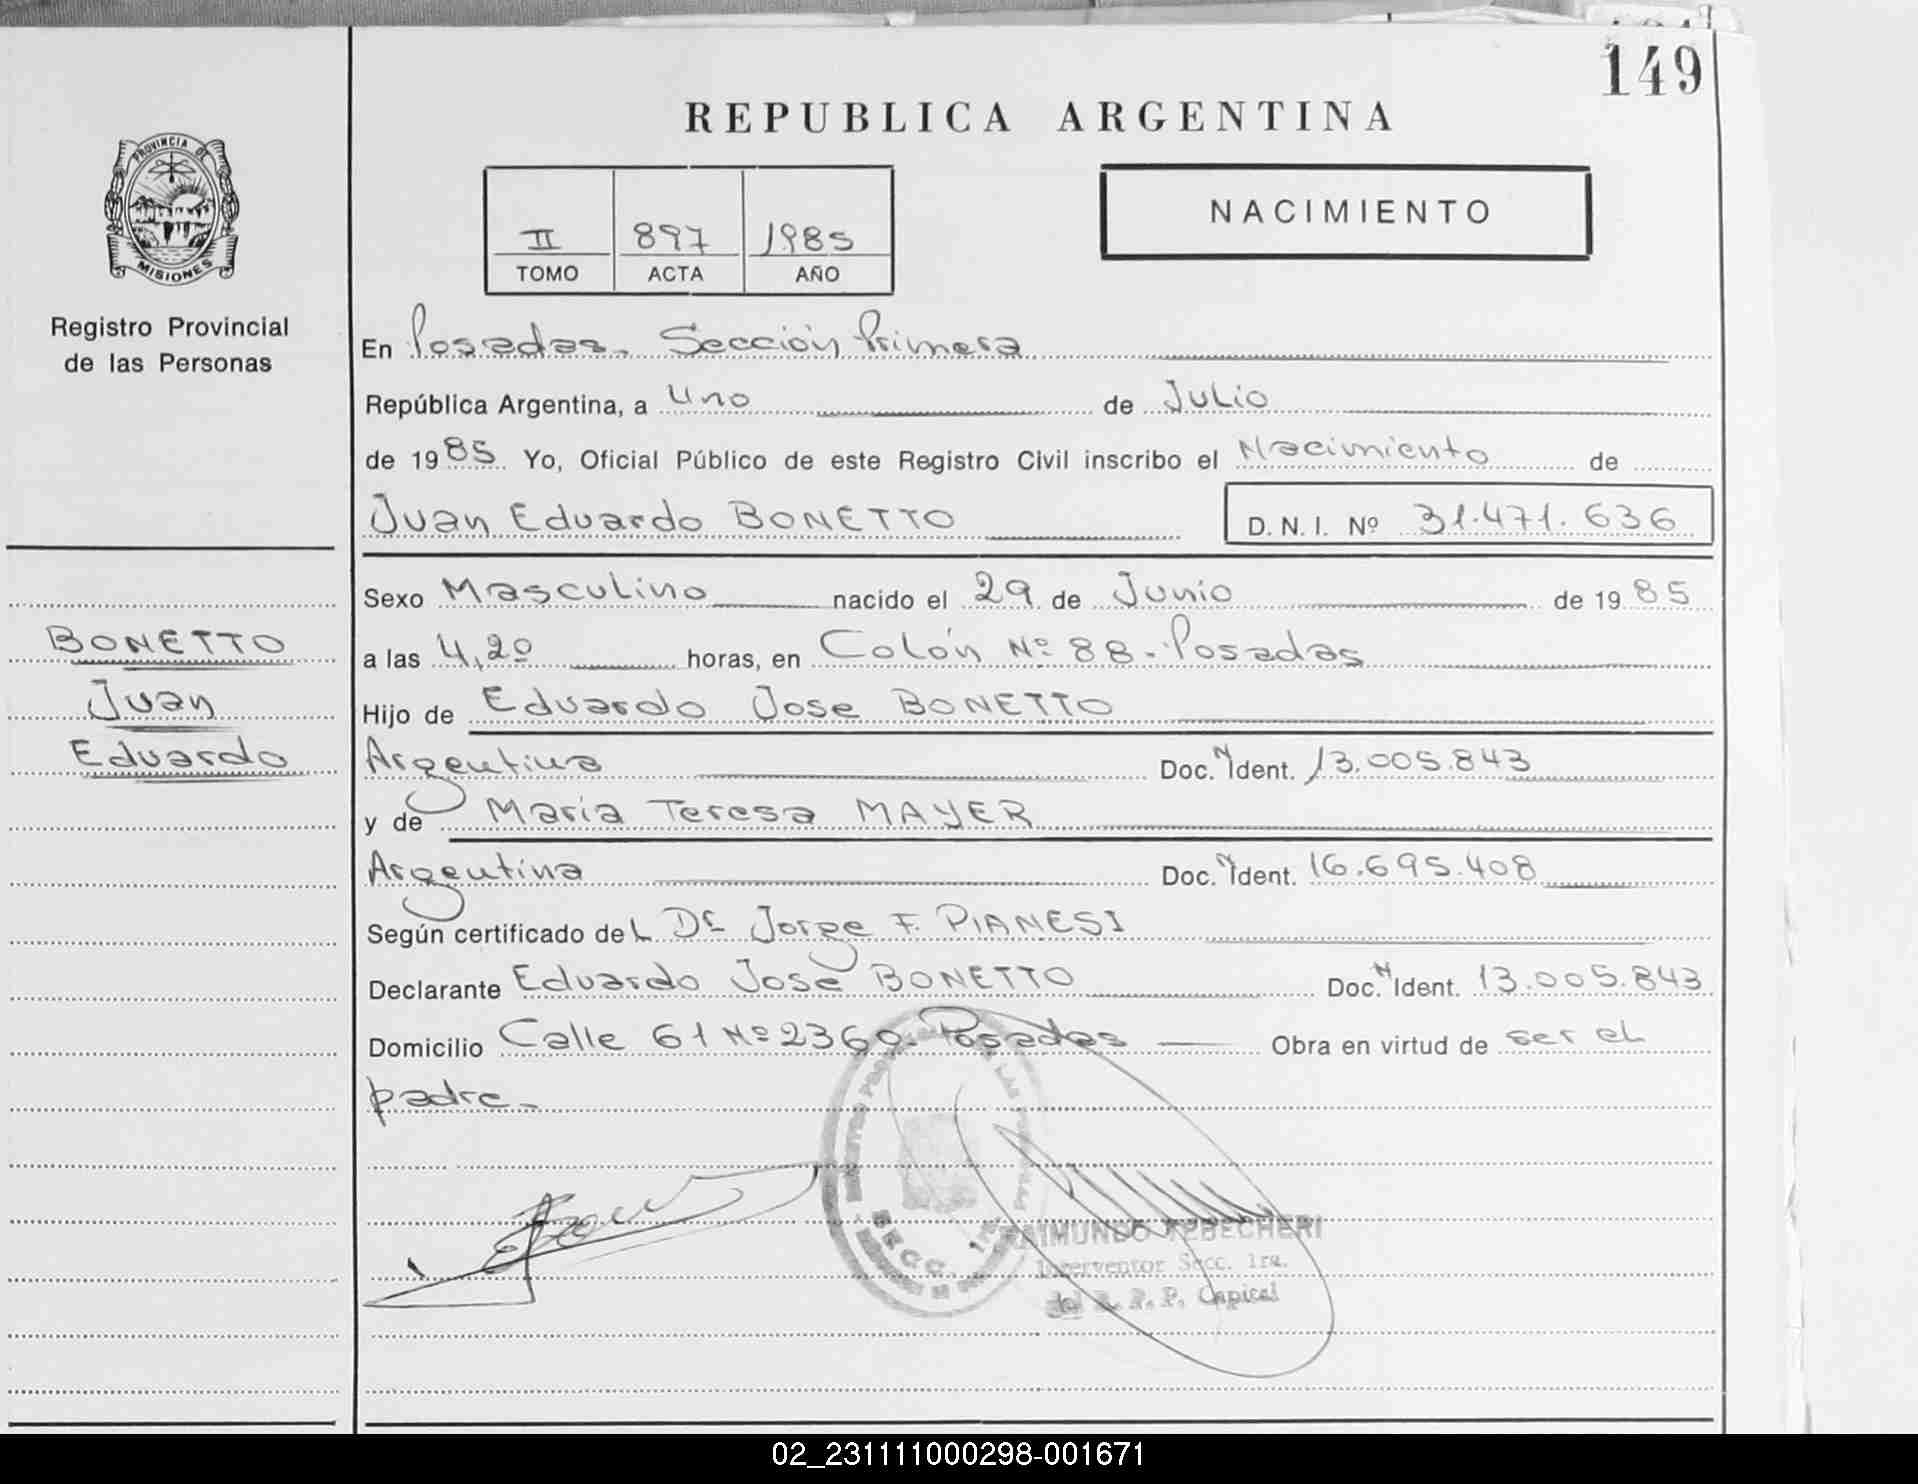 149
REPUBLICA ARGENTINA
PROVINCIA DE
MISIONES
Registro Provincial
de las Personas
II 897 1985
TOMO ACTA AÑO
NACIMIENTO
En Posadas. Sección Primera
República Argentina, a Uno de Julio
de 1985 Yo, Oficial Público de este Registro Civil inscribo el Nacimiento de
Juan Eduardo BONETTO D. N. I. Nº 31.471.636
BONETTO
Juan
Eduardo
Sexo Masculino nacido el 29 de Junio de 1985
a las 4,20 horas, en Colón Nº 88. Posadas
Hijo de Eduardo Jose BONETTO
Argentina Doc. N Ident. 13.005.843
y de Maria Teresa MAYER
Argentina Doc. N Ident. 16.695.408
Según certificado del Dr Jorge F. PIANESI
Declarante Eduardo José BONETTO Doc. N Ident. 13.005.843
Domicilio Calle 61 Nº 2360. Posadas Obra en virtud de ser el
padre.
SECC. 1ª
RAIMUNDO
Interventor Secc. 1ra.
del R. P. P. Capital
02_231111000298-001671